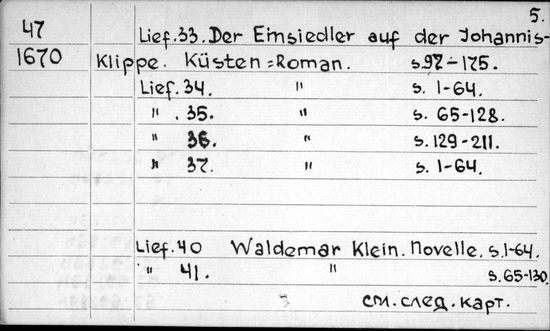 5.
47 Lief.33. Der Einsiedler auf der Johannis-
1670 Klippe. Küsten=Roman. s.97-175.
Lief.34. " s. 1-64.
" .35. " s. 65-128.
" 36. " s.129-211.
" 37. " s. 1-64.
Lief.40 Waldemar Klein. Novelle. s.1-64.
" 41. " s.65-130.
см. след. карт.